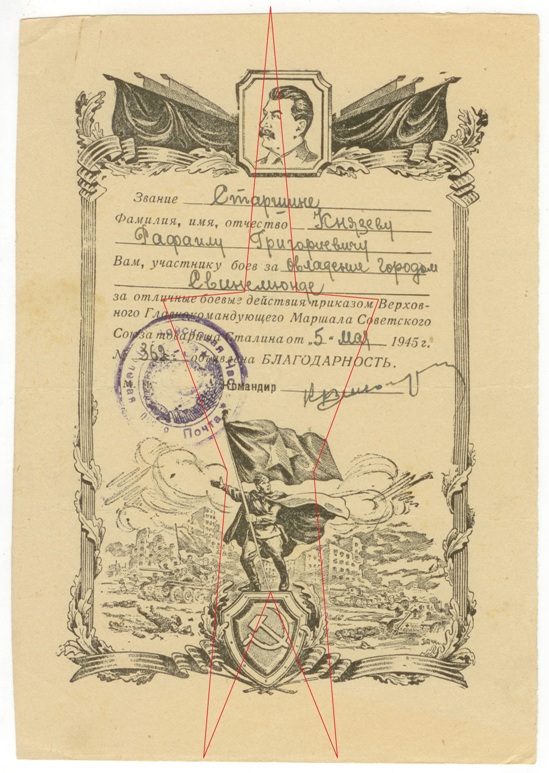 Звание Старшине
Фамилия, имя, отчество Князеву
Рафаилу Григориевичу
Вам, участнику боев за овладение городом
Свинемюнде
за отличные боевые действия приказом Верхов-
ного Главнокомандующего Маршала Советского
Союза товарища Сталина от „5“ мая 1945 г.
№ 362 объявлена БЛАГОДАРНОСТЬ.
М. Командир
Полевая Почта